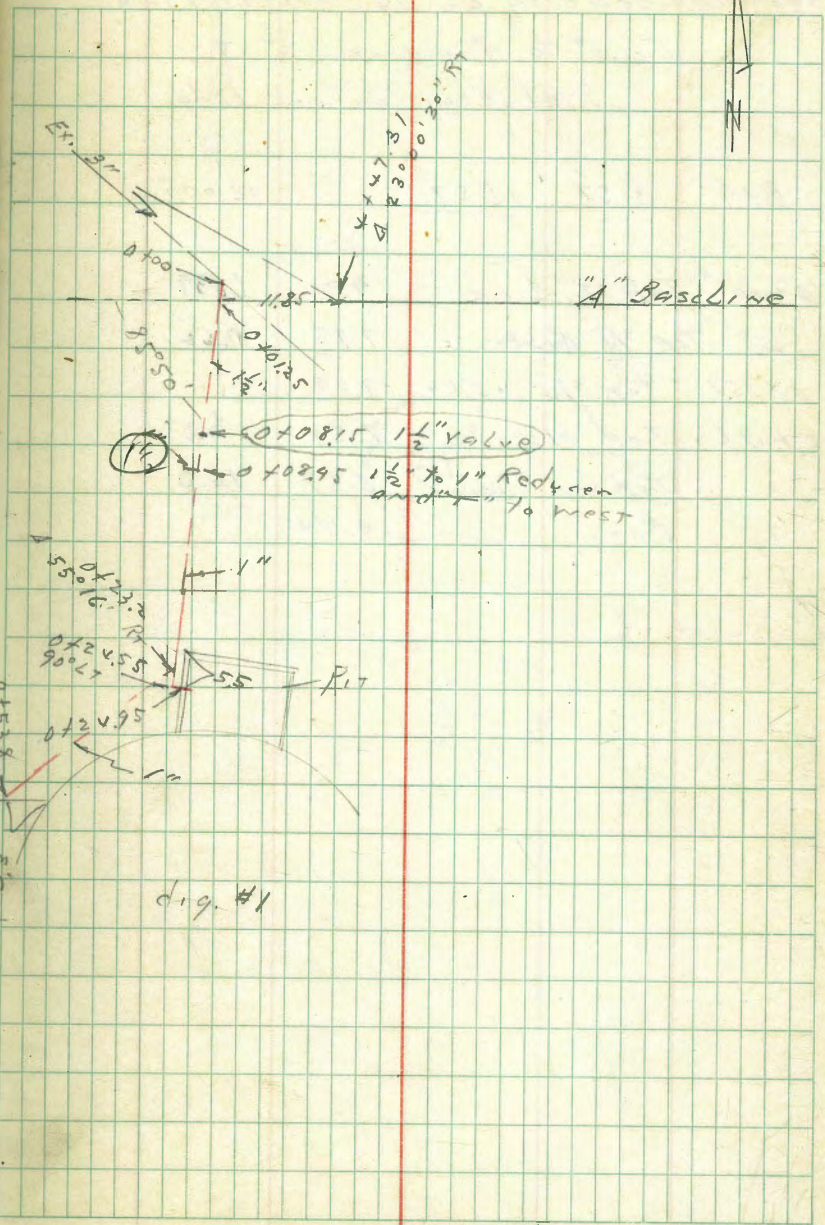 N
4+47.31
Δ 23°00'30" RT
Ex. 3"
0+00
11.85
"A" BaseLine
0+01.25
1½"
85°50'
0+08.15 1½" Valve
1"
0+08.95 1½" to 1" Reducer
and "T" to west
1"
0+23.2
55°16' RT
0+24.55
90° LT
55
Pit
0+24.95
1"
dig. #1